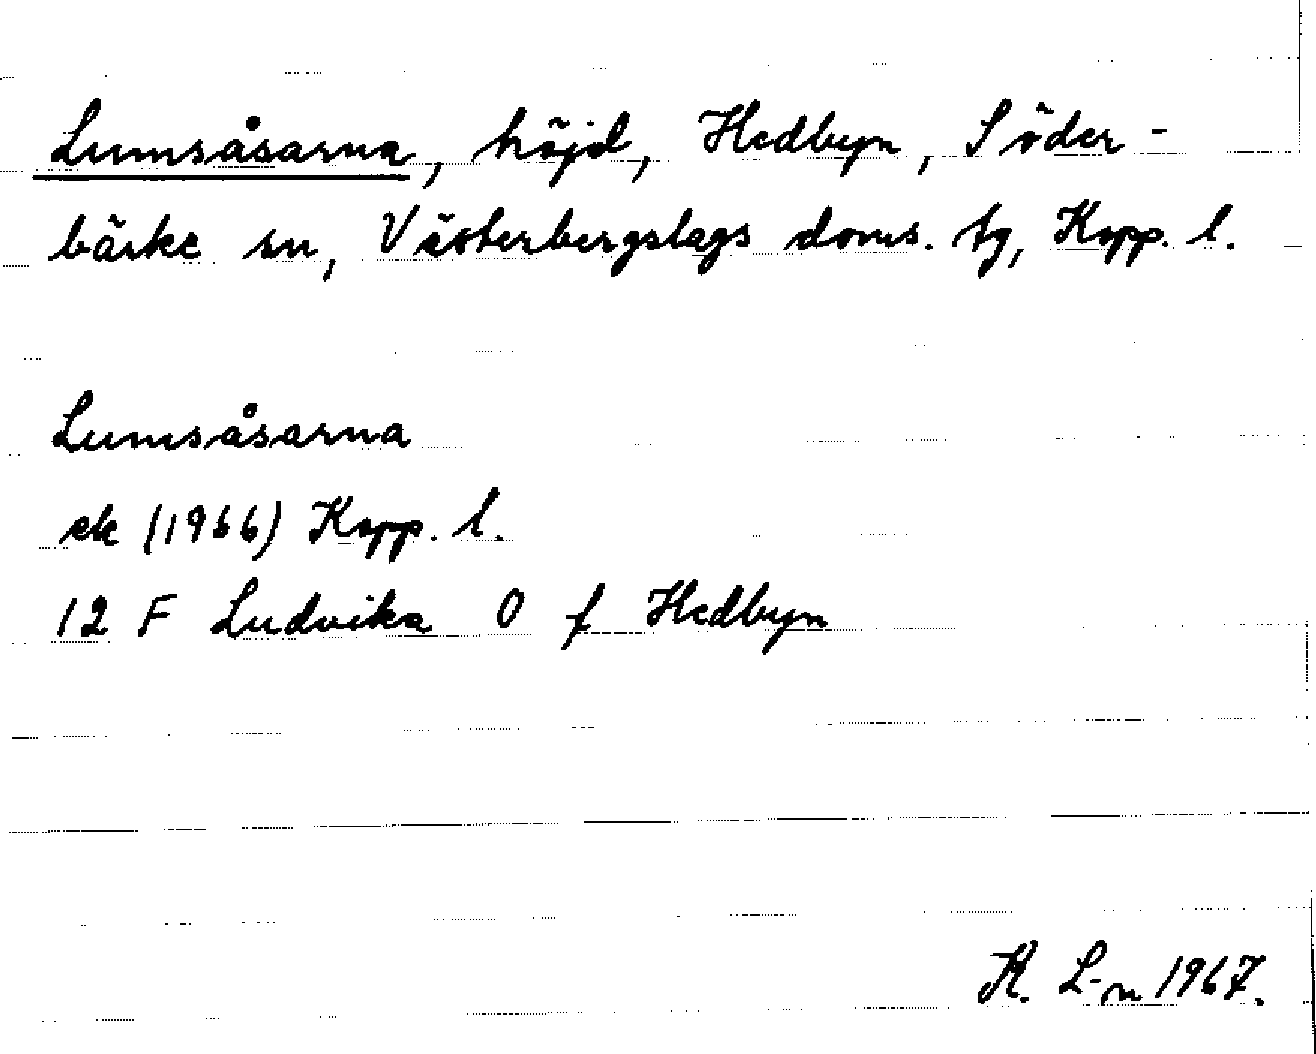 Lumsåsarna, höjd, Hedbyn, Söder-
bärke sn, Västerbergslags doms. tg, Kopp. l.
Lumsåsarna
ek (1966) Kopp. l.
12 F Ludvika O f Hedbyn
K. L-n 1967.